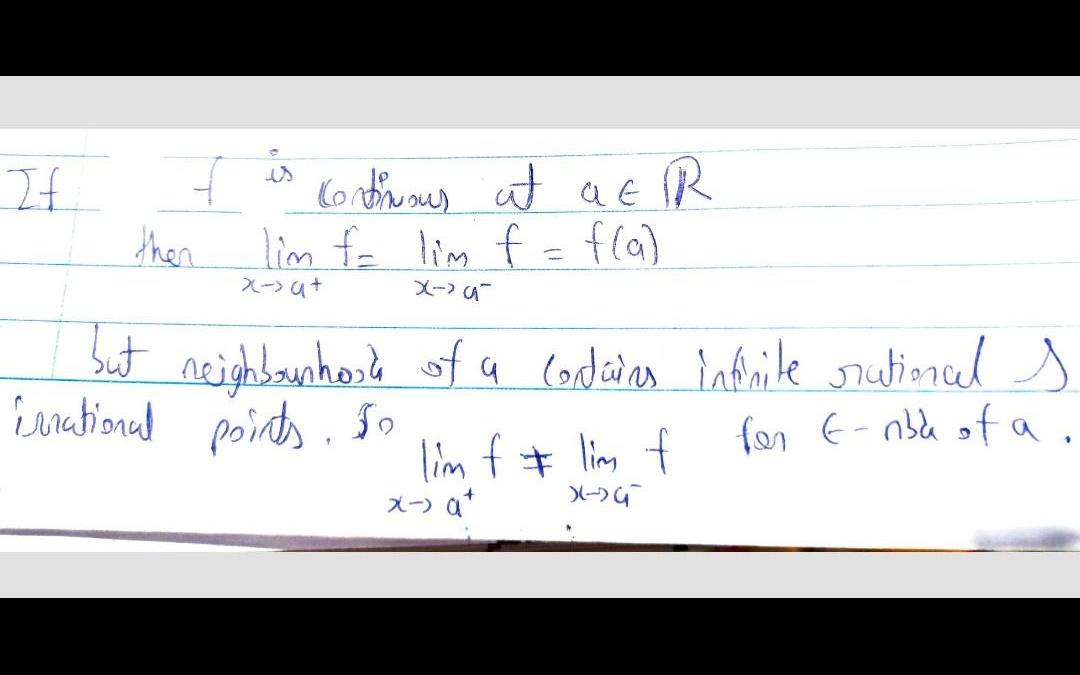 If f is continuous at a ∈ ℝ
then lim f = lim f = f(a)
x→a⁺ x→a⁻
but neighbourhood of a contains infinite rational &
irrational points. So
lim f ≠ lim f for ε-nbd of a.
x→a⁺ x→a⁻